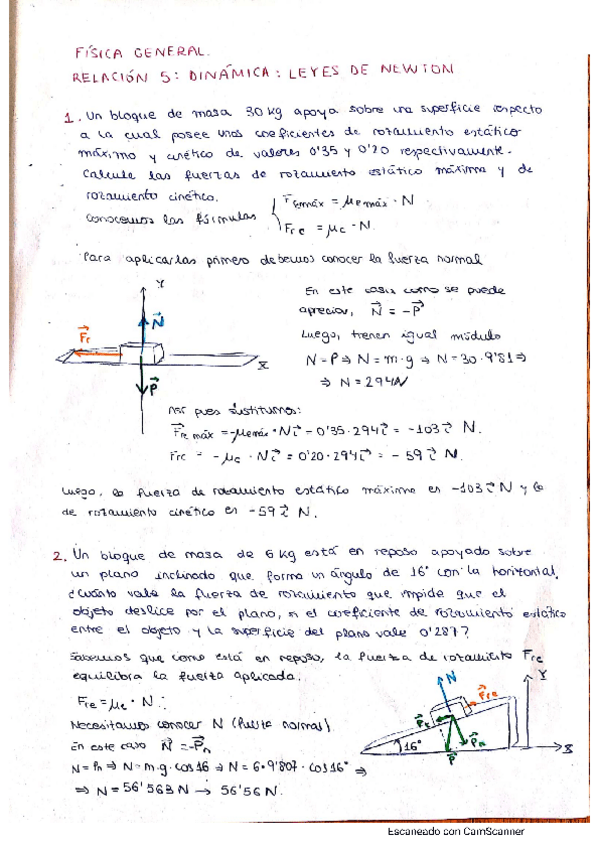 FÍSICA GENERAL.
RELACIÓN 5: DINÁMICA: LEYES DE NEWTON
1. Un bloque de masa 30 kg apoya sobre una superficie respecto
a la cual posee unos coeficientes de rozamiento estático
máximo y cinético de valores 0'35 y 0'20 respectivamente.
Calcule las fuerzas de rozamiento estático máxima y de
rozamiento cinético.
Conocemos las fórmulas
Fremáx = μemáx · N
Frc = μc · N.
Para aplicarlas primero debemos conocer la fuerza normal
Y
N
Fr
X
P
En este caso, como se puede
apreciar, N = -P
Luego, tienen igual módulo
N = P ⇒ N = m·g ⇒ N = 30·9'81 ⇒
⇒ N = 294N
Así pues sustituimos:
Fre máx = -μemáx · N i = 0'35·294 i = -103 i N.
Frc = -μc · N i = 0'20·294 i = -59 i N.
Luego, la fuerza de rozamiento estático máxima es -103 i N y la
de rozamiento cinético es -59 i N.
2. Un bloque de masa de 6 kg está en reposo apoyado sobre
un plano inclinado que forma un ángulo de 16° con la horizontal.
¿Cuánto vale la fuerza de rozamiento que impide que el
objeto deslice por el plano, si el coeficiente de rozamiento estático
entre el objeto y la superficie del plano vale 0'287?
Sabemos que como está en reposo, la fuerza de rozamiento Fre
equilibra la fuerza aplicada.
Fre = μe · N
Necesitamos conocer N (fuerza normal).
En este caso N = -Pn
N = Pn ⇒ N = m·g·cos16 ⇒ N = 6·9'807·cos16° ⇒
⇒ N = 56'563N → 56'56N.
N
Fre
Y
Pt
Pn
16°
P
X
Escaneado con CamScanner